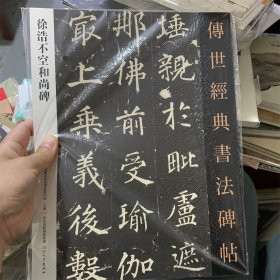 傳世經典書法碑帖
埵親於毗盧遮
那佛前受瑜伽
㝡上乗義後數
徐浩不空和尚碑